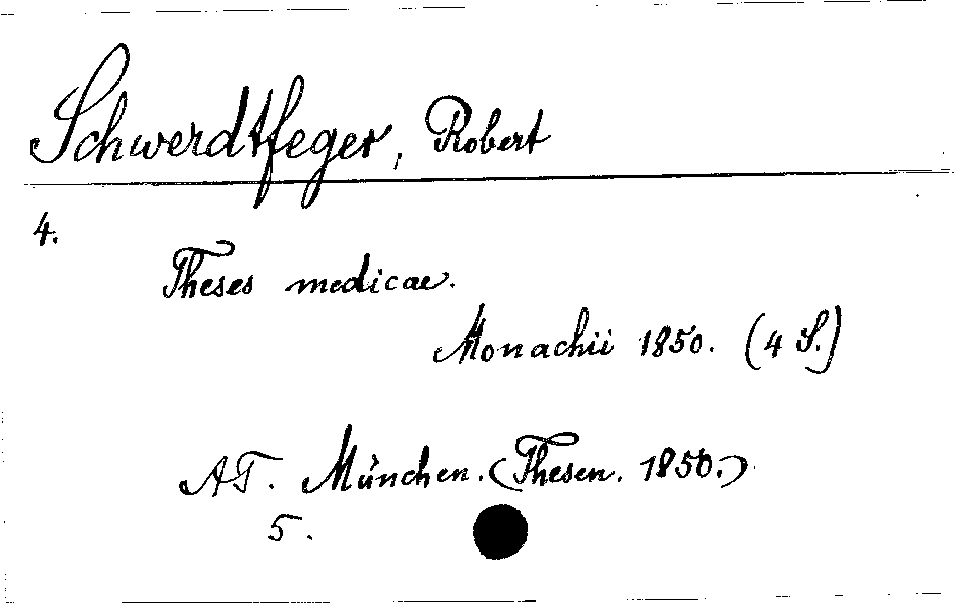 Schwerdtfeger, Robert
4.
Theses medicae.
Monachii 1850. (4 S.)
AT. München. (Thesen. 1850.)
5.